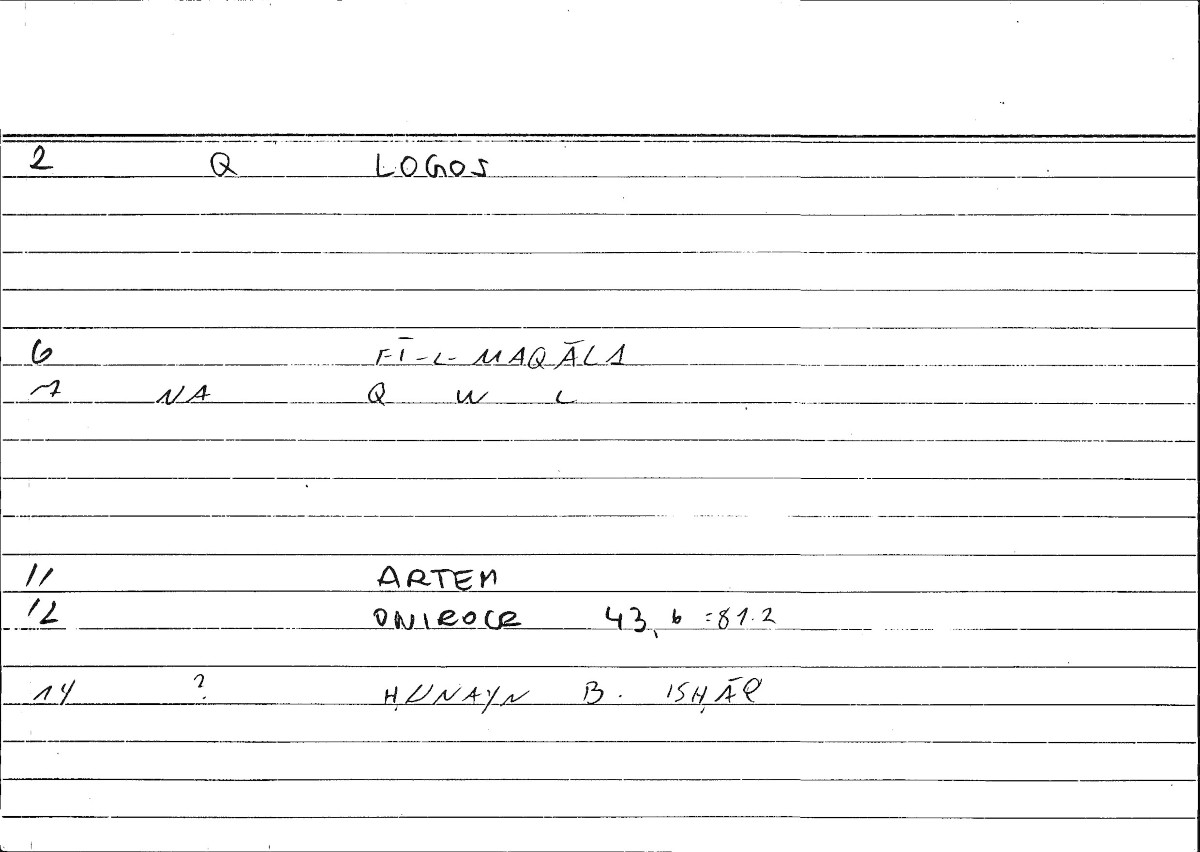 2 Q LOGOS
6 FĪ-L-MAQĀLA
7 NA Q W L
11 ARTEM
12 ONIROCR 43, 6 =81.2
14 ? ḤUNAYN B. ISḤĀQ